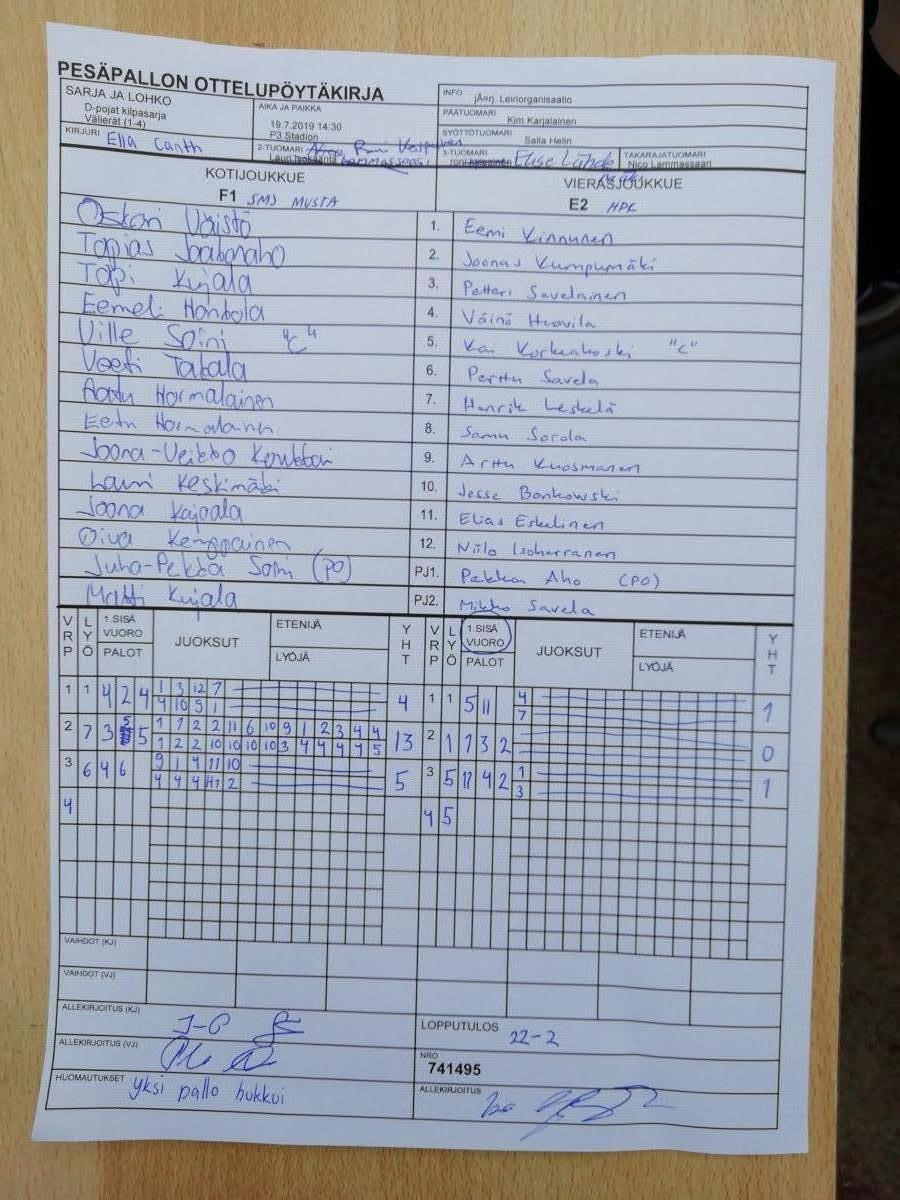 PESÄPALLON OTTELUPÖYTÄKIRJA
SARJA JA LOHKO
D-pojat kilpasarja
Välierät (1-4)
AIKA JA PAIKKA
19.7.2019 14:30
P3 Stadion
INFO
jÄrj. Leiriorganisaatio
PÄÄTUOMARI
Kim Karjalainen
SYÖTTÖTUOMARI
Salla Helin
KIRJURI Ella Canth
2-TUOMARI
Lauri
3-TUOMARI
roni
Elise
TAKARAJATUOMARI
Nico Lammassaari
KOTIJOUKKUE
F1 SMJ MUSTA
VIERASJOUKKUE
E2 HPK
Oskari Väistö 1. Eemi Kinnunen
Topias 2. Joonas Kumpumäki
Topi Kujala 3. Petteri Savelainen
Eemeli Honkola 4. Väinö Huovila
Ville Soini "C" 5. Kai Korkeakoski "C"
Veeti Takala 6. Perttu Savela
Aatu Hormalainen 7. Henrik Leskelä
Eetu Hormalainen 8. Samu Sorola
Joona-Veikko 9. Arttu Kuosmanen
Lauri Keskimäki 10. Jesse Bonkowski
Joona Kajaala 11. Elias Eskelinen
Oiva Kemppainen 12. Niilo Isoherranen
Juha-Pekka Soini (PO) PJ1. Pekka Aho (PO)
Matti Kujala PJ2. Mikko Savela
VRP LYÖ 1.SISÄ VUORO PALOT JUOKSUT ETENIJÄ LYÖJÄ YHT VRP LYÖ 1.SISÄ VUORO PALOT JUOKSUT ETENIJÄ LYÖJÄ YHT
1 1 4 2 4 1 3 12 7 4 1 1 5 11 4 1
4 10 9 1 7
2 7 3 5 5 1 1 2 2 11 6 10 9 1 2 3 4 4 13 2 1 1 3 2 0
1 2 2 10 10 10 10 3 4 4 4 4 5
3 6 4 6 9 1 4 11 10 5 3 5 4 2 1 1
4 4 4 2 3
4 4 5
VAIHDOT (KJ)
VAIHDOT (VJ)
ALLEKIRJOITUS (KJ)
J-P
LOPPUTULOS
22-2
ALLEKIRJOITUS (VJ)
NRO
741495
HUOMAUTUKSET yksi pallo hukkui
ALLEKIRJOITUS